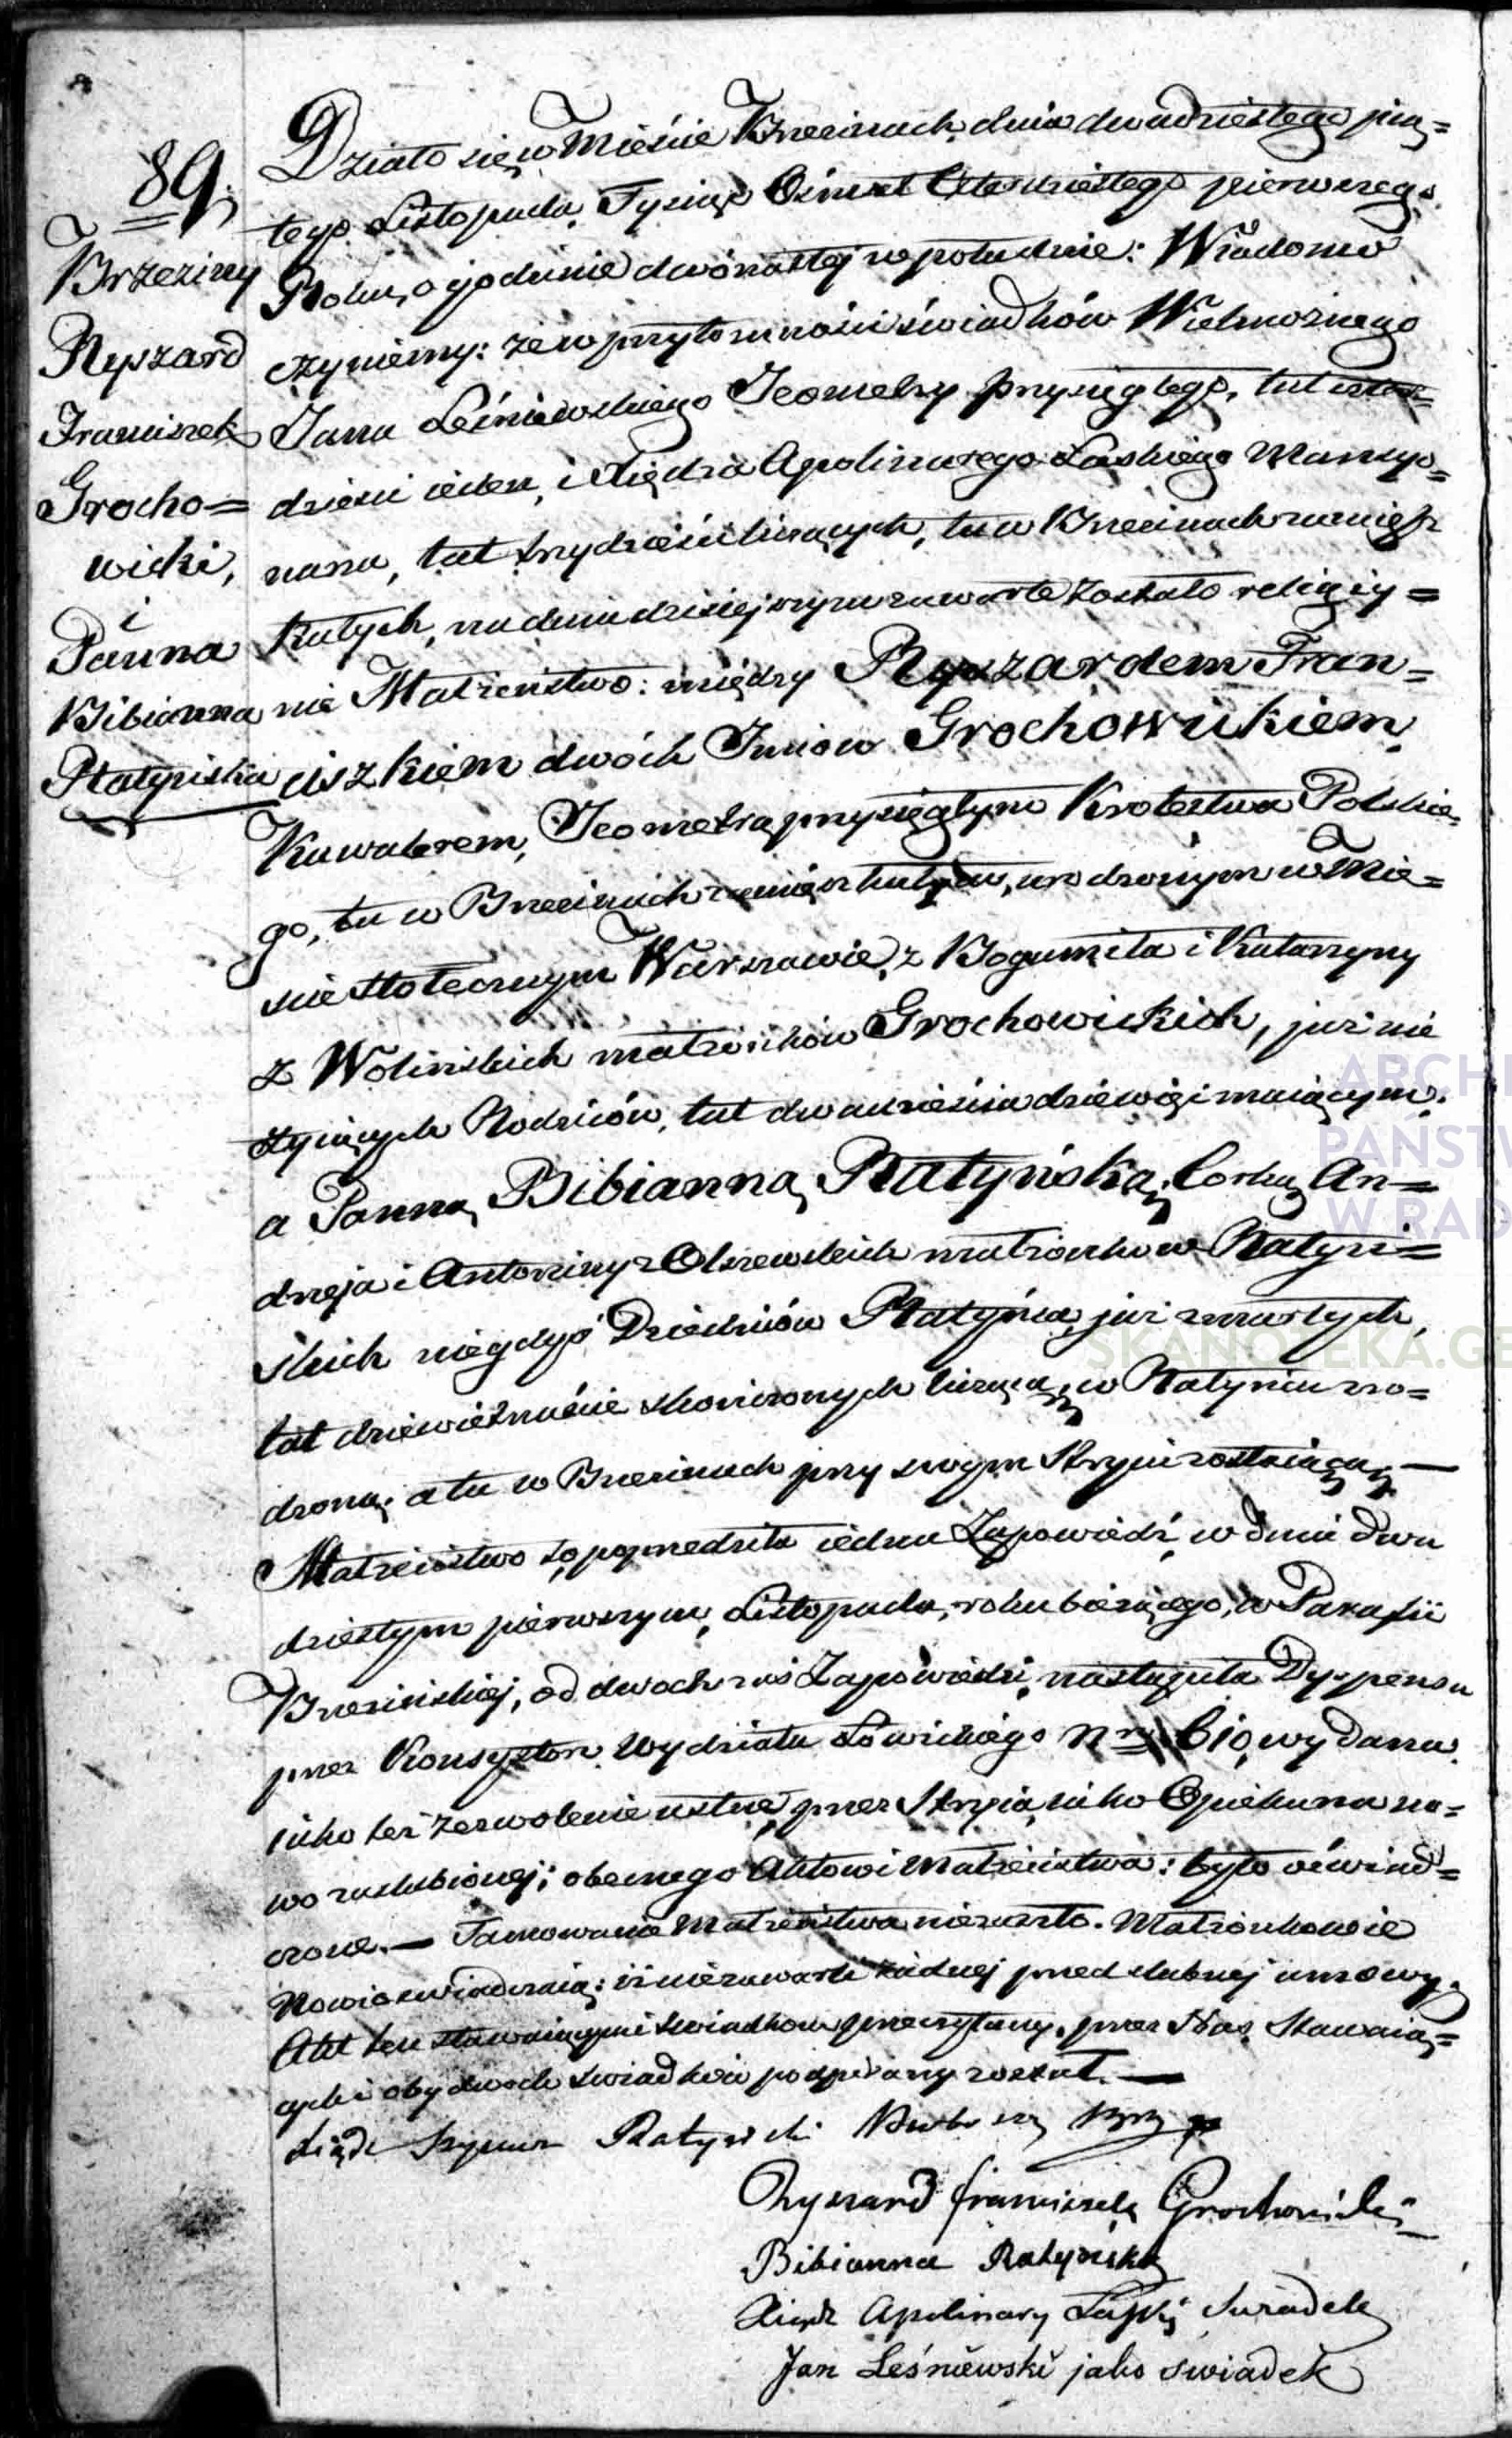 89.
Brzeziny
Ryszard
Franciszek
Grocho=
wicki,
i
Panna
Bibianna
Ratyńska
Działo się w Mieście Brzezinach dnia dwudziestego pią=
tego Listopada, Tysiąc Ośmset Czterdziestego pierwszego
Roku, o godzinie dwónastej w południe: Wiadomo
czyniemy: że w przytomności świadków Wielmożnego
Jana Leśniewskiego Jeometry przysięgłego, lat
dzieści ieden, i Xiędza Apolinarego Laskiego Mansyo=
narza, lat trzydzieści liczących, tu w Brzezinach zamiesz
kałych, na dniu dzisiejszym zawarte zostało religiiy=
nie Małżeństwo: między Ryszardem Fran=
ciszkiem dwóch Imion Grochowickiem,
Kawalerem, Jeometrą przysięgłym Krolestwa Polskie=
go, tu w Brzezinach zamieszkałym, urodzonym w Mie=
ście stołecznym Warszawie, z Bogumiła i Katarzyny
z Wolińskich małżonków Grochowickich, już nie
żyiących Rodziców, lat dwadzieścia dziewięć maiącym;
a Panną Bibianną Ratyńską, Corką An=
drzeja i Antoniny z Olszewskich małżonków Ratyń=
skich niegdyś Dziedziców Ratynia, już zmarłych,
lat dziewiętnaście skończonych liczącą, w Ratyniu uro=
dzoną; a tu w Brzezinach przy swym Stryiu zostaiącą. —
Małżeństwo to poprzedziła iedna Zapowiedź, w dniu dwu
dziestym pierwszym, Listopada, roku bieżącego, w Parafii
Brzezińskiej, od dwoch zaś Zapowiedzi, nastąpiła Dyspensa
przez Konsystorz Wydziału Łowickiego Nr 610, wydana.
iako też zezwolenie ustne, przez Stryia, iako Opiekuna no=
wo zaslubionej; obecnego Aktowi Małżeństwa; było oświad=
czone. — Tamowanie Małżeństwa nie zaszło. Małżonkowie
Nowi oświadczaią: iż nie zawarli żadnej przed slubnej umowy.
Akt ten stawaiącym i świadkom przeczytany, przez Nas, Stawaią=
cych i obydwoch świadków podpisany został. —
Ksiądz Szymon Ratyński
Ryszard Franciszek Grochowicki
Bibianna Ratyńska
Xiądz Apolinary Laski Swiadek
Jan Leśniewski jako swiadek
ARCHI
PAŃSTW
W RAD
SKANOTEKA.GE